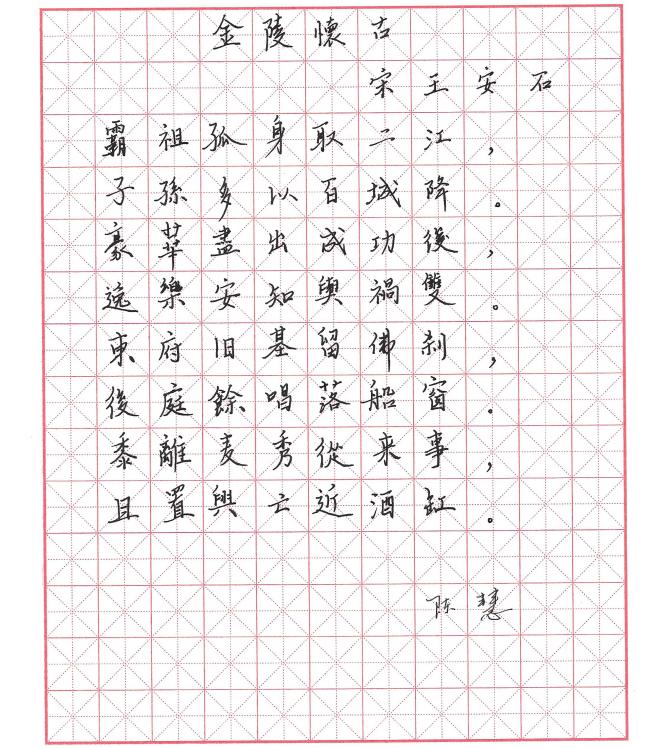 金陵懷古
宋王安石
霸祖孤身取二江，
子孫多以百城降。
豪華盡出成功後，
逸樂安知與禍雙。
東府旧基留佛刹，
後庭餘唱落船窗。
黍離麦秀從来事，
且置興亡近酒缸。
陈慧